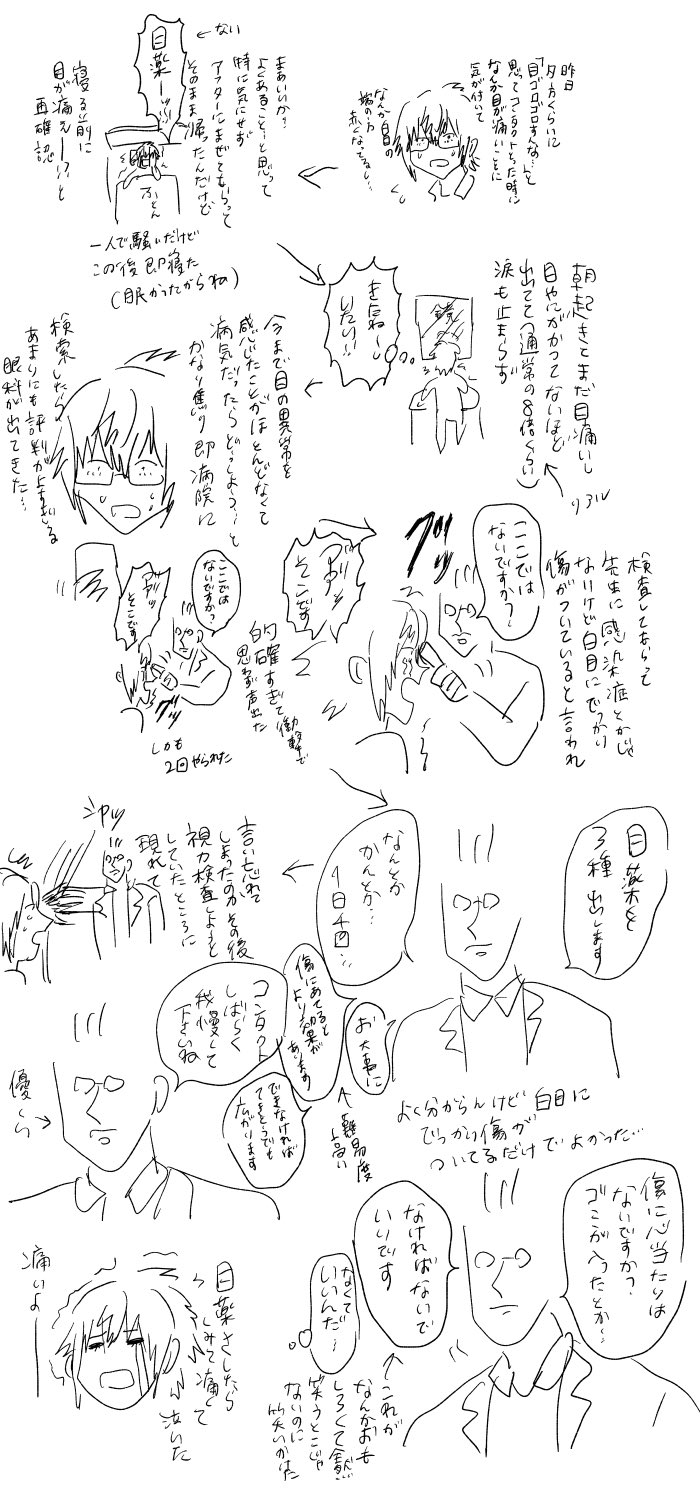 昨日
夕方くらいに
「目ゴロゴロすんな…」と
思ってコンタクトとった時に
なんか目が痛いことに
気が付いて
なんか白目の
端の方
赤くなってるし…
まあいいか?
よくあること…と思って
特に気にせず
アフターにまぜてもらって
そのまま帰ったんだけど
←ない
目薬ーッ!!
ふとん
寝る前に
目が痛え〜!!と
再確認
一人で騒いだけど
この後即寝た
(眠かったからね)
朝起きてまだ目痛いし
目やにがかつてないほど
出てて(通常の8倍くらい)
涙も止まらず
リアル
鏡
いたい!!
今まで目の異常を
感じたことがほとんどなくて
病気だったらどうしよう…と
かなり焦り即病院に
検索したら
あまりにも評判が上すぎる
眼科が出てきた…
検査してもらって
先生に感染症とかじゃ
ないけど白目にでっかり
傷がついていると言われ
ここでは
ないですか?
グッ
アアッ
そこです
的確すぎて衝撃で
思わず声出た
ここでは
ないですか?
グッ
アアッ
そこです
しかも
2回やられた
目薬を
3種出します
なんとか
かんとか…
1日4回…
お大事に
よく分からんけど白目に
でっかり傷が
ついてるだけでよかった…
言い忘れて
しまったのかその後
視力検査しようと
していたところに
現れて
シャッ
傷にあてると
より効果が
あります
できなければ
てきとうでも
広がります
↑難易度
高い
コンタクト
しばらく
我慢して
下さいね
優しい→
傷に心当たりは
ないですか?
ゴミが入ったとか…
なければないで
いいです
なくて
いいんだ…
←これが
なんかおも
しろくて全然
笑うとこじゃ
ないのに
笑いかけた
目薬さしたら
しみて痛くて
泣いた
痛いよ